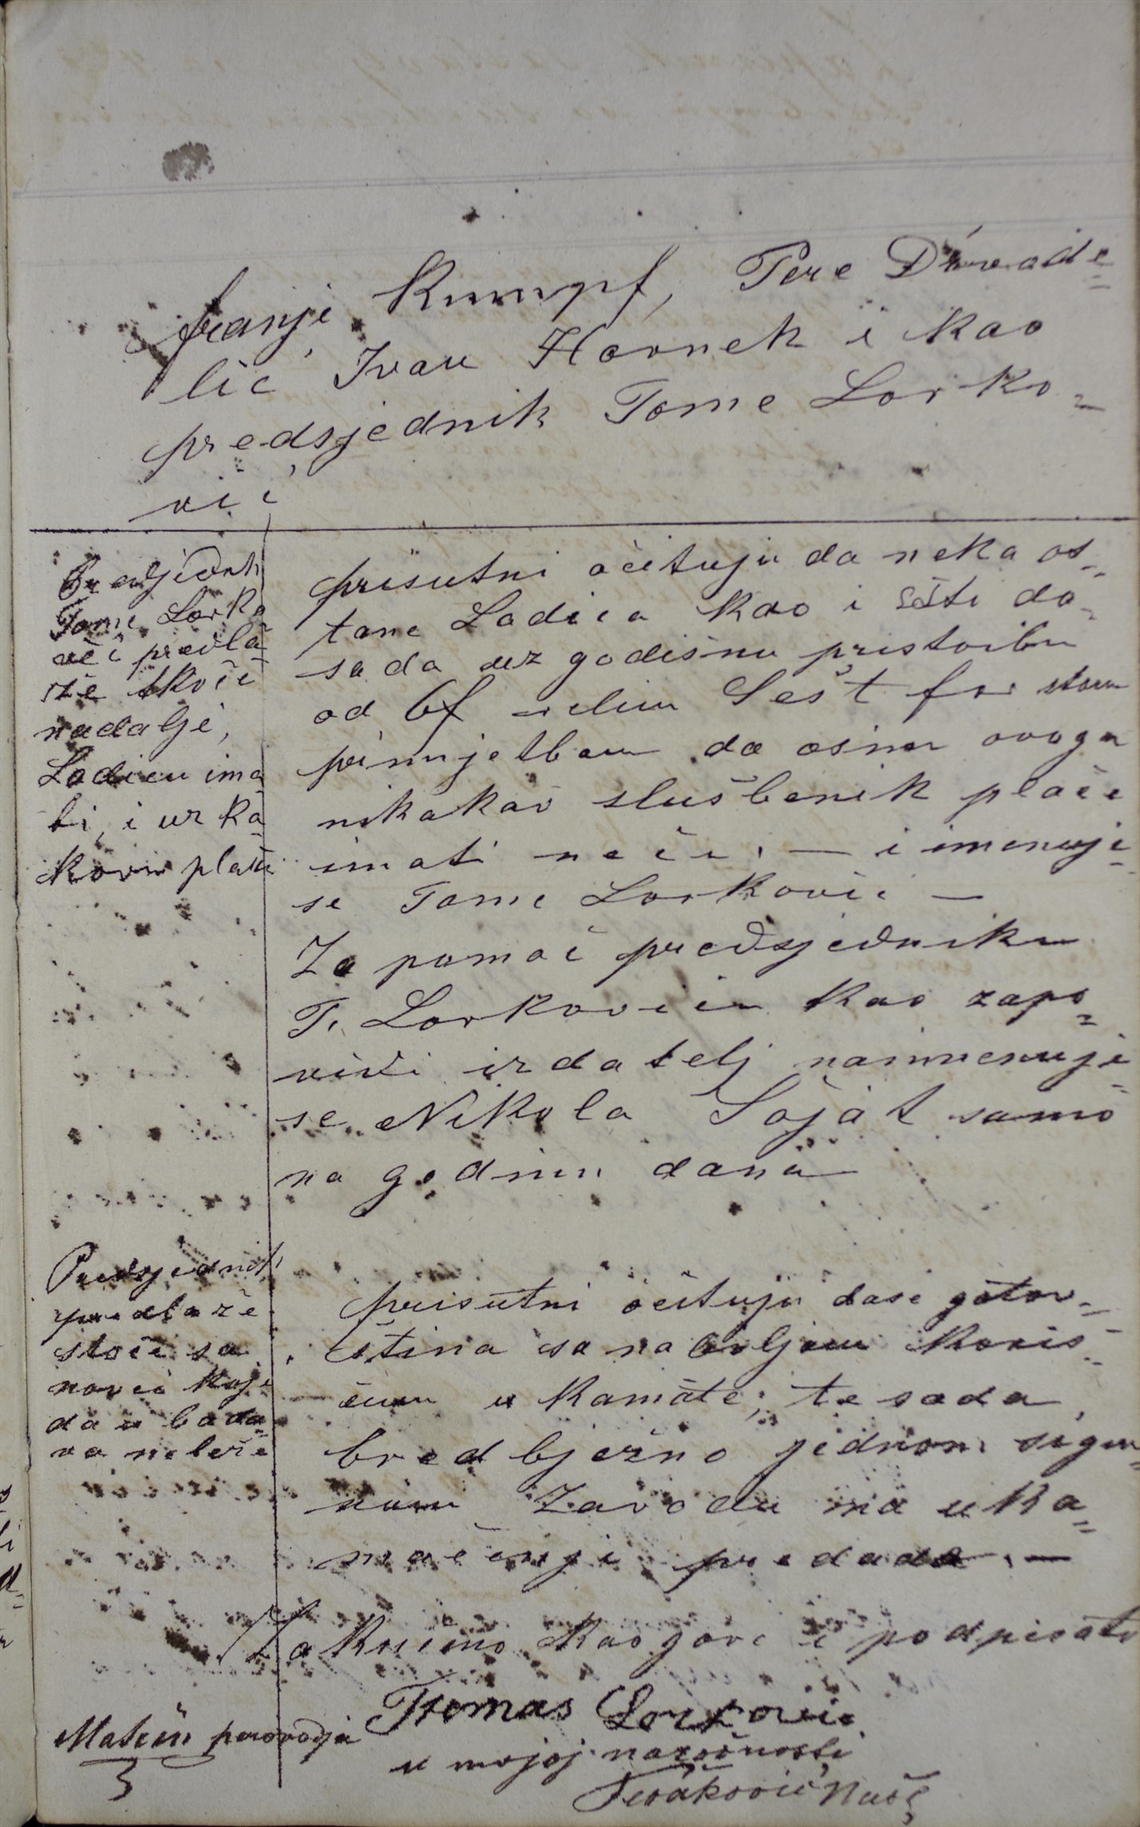 franje Kumpf, Pere Dúvnade=
lić Ivan Hornek i kao
predsjednik Tome Lorko=
vić
Predsjednik
Tome Lorko
vić predla
že
nadalje,
Ladicu ima
ti, i uz ka
kovu plaću
prisutni očituju da neka os=
tane Ladica kao i šesti do=
sada uz godišnu pristoibu
od 6f velim Šest for stom
primjetbom da osim ovoga
nikakav službenik plaće
imati neće. — i imenuje
se Tome Lorković —
Za pomoć predsjedniku
T. Lorkoviću kao zapo=
vidi izdatelj naimenuje
se Nikola Soját samo
na godinu dana
Predsjednik
predlaže
stoći sa
novci koji
da u bada
va neleže
prisutni očituju dase gotov=
ština sa na boljom koris=
ćum u kamate; te sada
bredbježno jednom sigur=
nom Zavodu na uka=
maćenje predade. —
Zakučeno kao gore i podpisato
Thomas Lorković
u mojoj nazočnosti